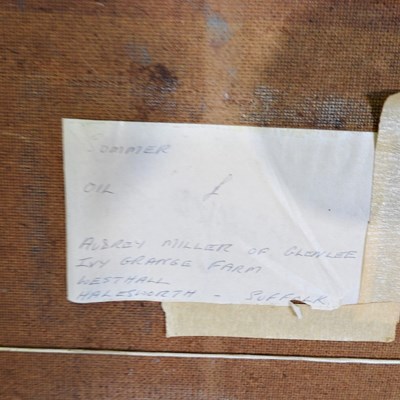 SOMMER
OIL £
AUBREY MILLER OF GLENLEE
IVY GRANGE FARM
WESTHALL
HALESWORTH - SUFFOLK